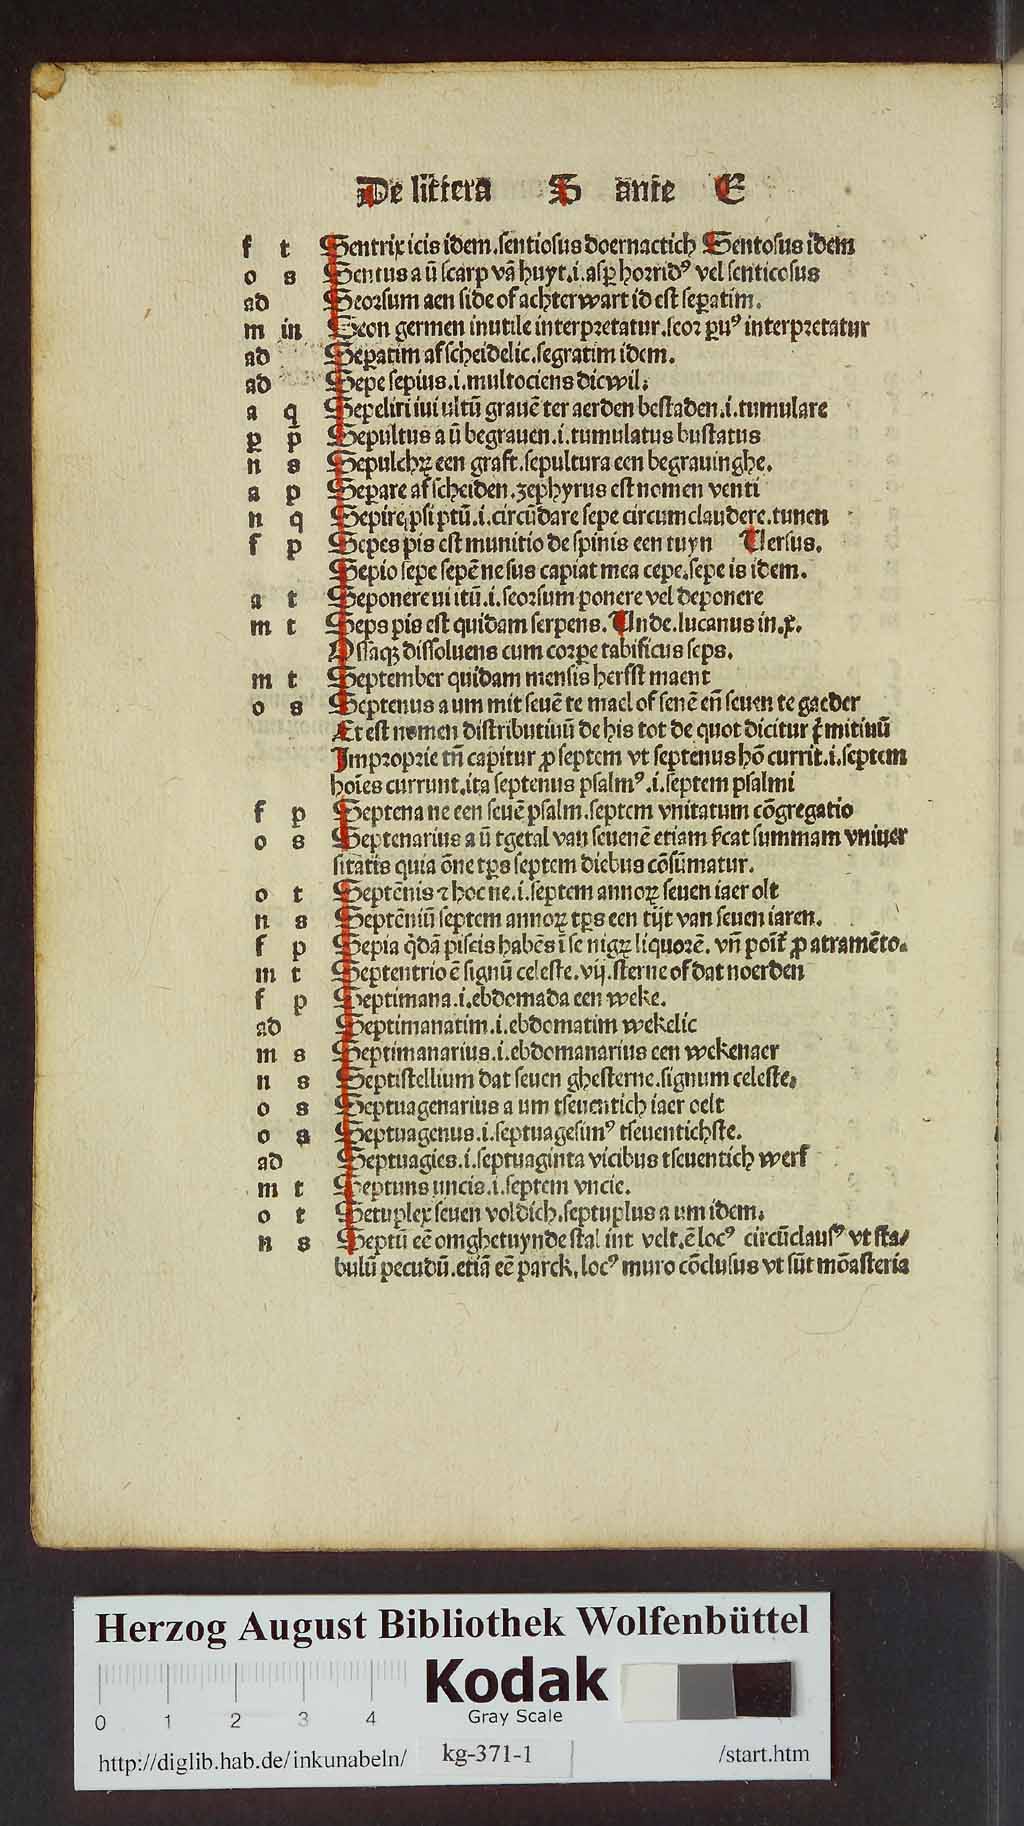 De littera S ante E
f t Sentrix icis idem.sentiosus doernactich Sentosus idem
o s Sentus a ū scarp vā huyt.i.asꝑ horridꝰ vel senticosus
ad Seorsum aen side of achterwart id est seꝑatim.
m in Seon germen inutile interpretatur.seor ꝑuꝰ interpretatur
ad Seꝑatim afscheidelic.segratim idem.
ad Sepe sepius.i.multociens dicwil.
a q Sepeliri iui ultū grauē ter aerden bestaden.i.tumulare
ꝑ p Sepultus a ū begrauen.i.tumulatus bustatus
n s Sepulchꝝ een graft.sepultura een begrauinghe.
a p Seꝑare afscheiden.zephyrus est nomen venti
n q Sepire psi ptū.i.circūdare sepe circumclaudere.tunen
f p Sepes pis est munitio de spinis een tuyn Versus.
Sepio sepe sepē ne sus capiat mea cepe.sepe is idem.
a t Seponere ui itū.i.seorsum ponere vel deponere
m t Seps pis est quidam serpens.Unde.lucanus in.x.
Ossaqꝫ dissoluens cum corpe tabificus seps.
m t September quidam mensis herfst maent
o s Septenus a um mit seuē te mael of seuē eñ seuen te gaeder
Et est nomen distributiuū de his tot de quot dicitur p̄mitiuū
Improprie tñ capitur ꝓ septem vt septenus hō currit.i.septem
hoīes currunt.ita septenus psalmꝰ.i.septem psalmi
f p Septena ne een seuē psalm.septem vnitatum cōgregatio
o s Septenarius a ū tgetal van seuenē etiam s̄cat summam vniuer
sitatis quia ōne tp̄s septem diebus cōsūmatur.
o t Septēnis ⁊ hoc ne.i.septem annoꝝ seuen iaer olt
n s Septēniū septem annoꝝ tp̄s een tijt van seuen iaren.
f p Sepia q̄dā piscis habēs ī se nigꝝ liquorē. vñ poīt̄ ꝓ atramēto.
m t Septentrio ē signū celeste.vij.sterne of dat noerden
f p Septimana.i.ebdomada een weke.
ad Septimanatim.i.ebdomatim wekelic
m s Septimanarius.i.ebdomanarius een wekenaer
n s Septistellium dat seuen ghesterne.signum celeste.
o s Septuagenarius a um tseuentich iaer oelt
o s Septuagenus.i.septuagesimꝰ tseuentichste.
ad Septuagies.i.septuaginta vicibus tseuentich werf
m t Septuns uncis.i.septem vncie.
o t Setuplex seuen voldich.septuplus a um idem.
n s Septū eē omghetuynde stal int velt.ē locꝰ circūclausꝰ vt sta/
bulū pecudū.etiā eē parck.locꝰ muro cōclusus vt sūt mōasteria
Herzog August Bibliothek Wolfenbüttel
Kodak
Gray Scale
0 1 2 3 4
http://diglib.hab.de/inkunabeln/ kg-371-1 /start.htm